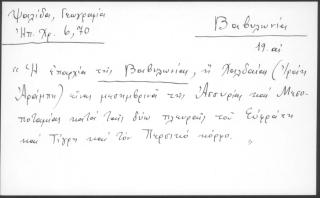 Ψαλίδα, Γεωγραφία
Ἠπ. Χρ. 6, 70
Βαβυλωνία
19. αἰ
" Ἡ ἐπαρχία τῆς Βαβυλωνίας, ἡ Χαλδαία (Ἰράκη
Ἀράμπη) εἶναι μεσημβρινά τῆς Ἀσσυρίας καί Μεσο-
ποταμίας κατά ταῖς δύω πλευραῖς τοῦ Εὐφράτη
καί Τίγρη καί τόν Περσικό κόρφο. "